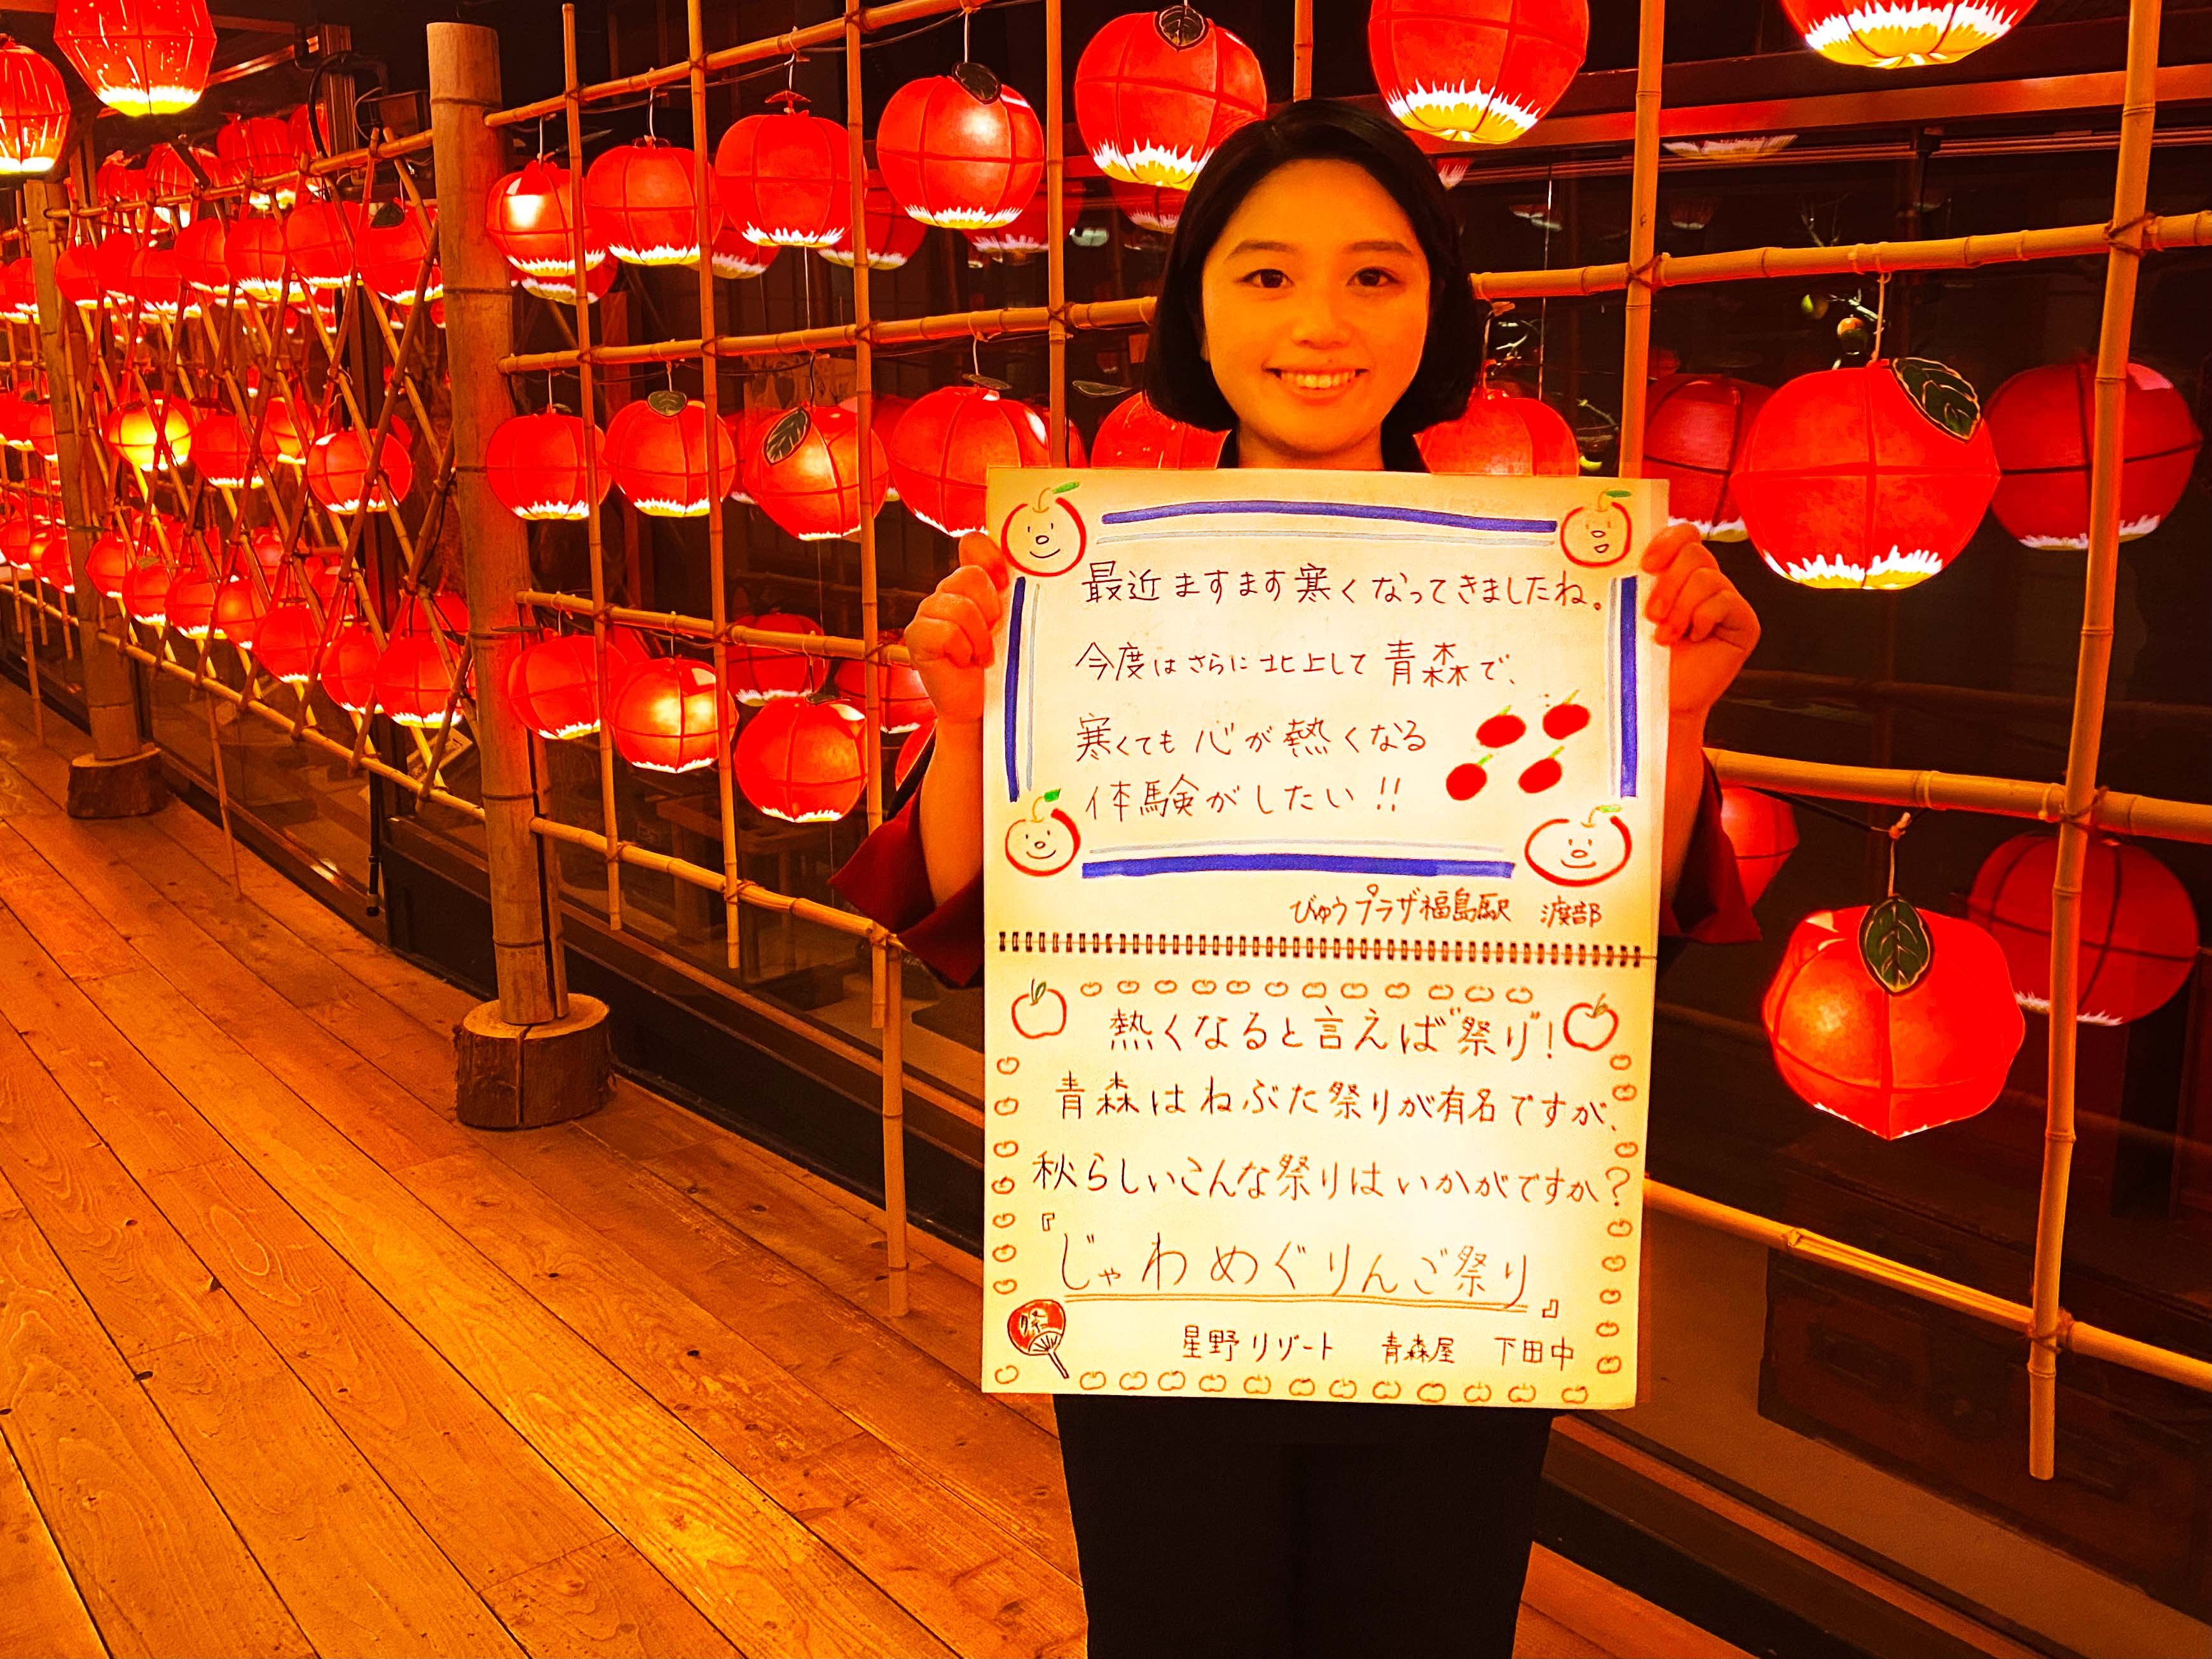 最近ますます寒くなってきましたね。
今度はさらに北上して青森で、
寒くても心が熱くなる
体験がしたい!!
びゅうプラザ福島駅 渡部
熱くなると言えば"祭り"!
青森はねぶた祭りが有名ですが、
秋らしいこんな祭りはいかがですか?
『じゃわめぐりんご祭り』
祭
星野リゾート 青森屋 下田中